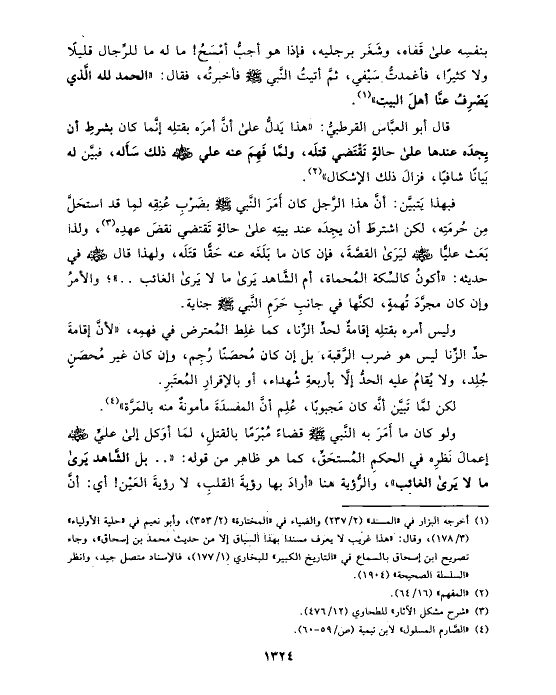 بنفسِه علىٰ قَفاه، وشَغَر برجليه، فإذا هو أجبُّ أمْسَحُ! ما له ما للرِّجال قليلًا
ولا كثيرًا، فأغمدتُّ سَيْفي، ثمَّ أتيتُ النَّبي ﷺ فأخبرتُه، فقال: «الحمد لله الَّذي
يَصْرِفُ عنَّا أهلَ البيت»(١).
قال أبو العبَّاس القرطبيُّ: «هذا يَدلُّ علىٰ أنَّ أمرَه بقتلِه إنَّما كان بشرطِ أن
يجِدَه عندها علىٰ حالةٍ تَقْتَضي قتلَه، ولمَّا فَهِمَ عنه علي ﵁ ذلك سَأله، فبيَّن له
بيَانًا شافيًا، فزالَ ذلك الإشكال»(٢).
فبهذا يَتبيَّن: أنَّ هذا الرَّجل كان أمَرَ النَّبي ﷺ بضَربِ عُنِقِه لمِا قد استحَلَّ
مِن حُرمَتِه، لكن اشترطَ أن يجِدَه عند بيتِه علىٰ حالةٍ تَقْتضي نقضَ عهدِه(٣)، ولذا
بَعَث عليًّا ﵁ ليَرىٰ القصَّة، فإن كان ما بَلَغَه عنه حقًّا قتَلَه، ولهذا قال ﵁ في
حديثه: «أكونُ كالسكة المُحماة، أم الشَّاهد يَرىٰ ما لا يَرىٰ الغائب ..»؛ والأمرُ
وإن كان مجرَّدَ تُهمةٍ، لكنَّها في جانبِ حَرَمِ النَّبي ﷺ جناية.
وليس أمره بقتلِه إقامةً لحدِّ الزِّنا، كما غلِط المُعترض في فهمِه، «لأنَّ إقامةَ
حدِّ الزِّنا ليس هو ضرب الرَّقبة، بل إن كان مُحصَنًا رُجِم، وإن كان غير مُحصَنٍ
جُلِد، ولا يُقامُ عليه الحدُّ إلَّا بأربعةِ شُهداء، أو بالإقرارِ المُعتبَر.
لكن لمَّا تَبيَّن أنَّه كان مَجبوبًا، عُلِم أنَّ المفسدَةَ مأمونةٌ منه بالمَرَّة»(٤).
ولو كان ما أمَرَ به النَّبي ﷺ قضاءً مُبْرَمًا بالقتلِ، لمَا أوكل إلىٰ عليٍّ ﵁
إعمالَ نَظرِه في الحكمِ المُستحَقِّ، كما هو ظاهر من قوله: «.. بل الشَّاهد يَرىٰ
ما لا يَرىٰ الغائب»، والرُّؤية هنا «أرادَ بها رؤيةَ القلبِ، لا رؤيةَ العَيْن! أي: أنَّ
(١) أخرجه البزار في «المسند» (٢٣٧/٢) والضياء في «المختارة» (٣٥٣/٢)، وأبو نعيم في «حلية الأولياء»
(١٧٨/٣)، وقال: «هذا غريب لا يعرف مسندا بهذا السياق إلا من حديث محمد بن إسحاق»، وجاء
تصريح ابن إسحاق بالسماع في «التاريخ الكبير» للبخاري (١٧٧/١)، فالإسناد متصل جيد، وانظر
«السلسلة الصحيحة» (١٩٠٤).
(٢) «المفهم» (٦٤/١٦).
(٣) «شرح مشكل الآثار» للطحاوي (٤٧٦/١٢).
(٤) «الصَّارم المسلول» لابن تيمية (ص/٥٩-٦٠).
١٣٢٤